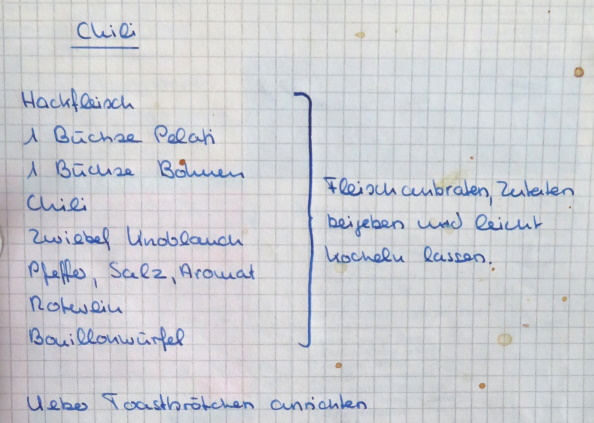 Chili
Hackfleisch
1 Büchse Pelati
1 Büchse Bohnen
Chili
Zwiebel Knoblauch
Pfeffer, Salz, Aromat
Rotwein
Bouillonwürfel
Fleisch anbraten, Zutaten
beigeben und leicht
köcheln lassen.
Ueber Toastbrötchen anrichten